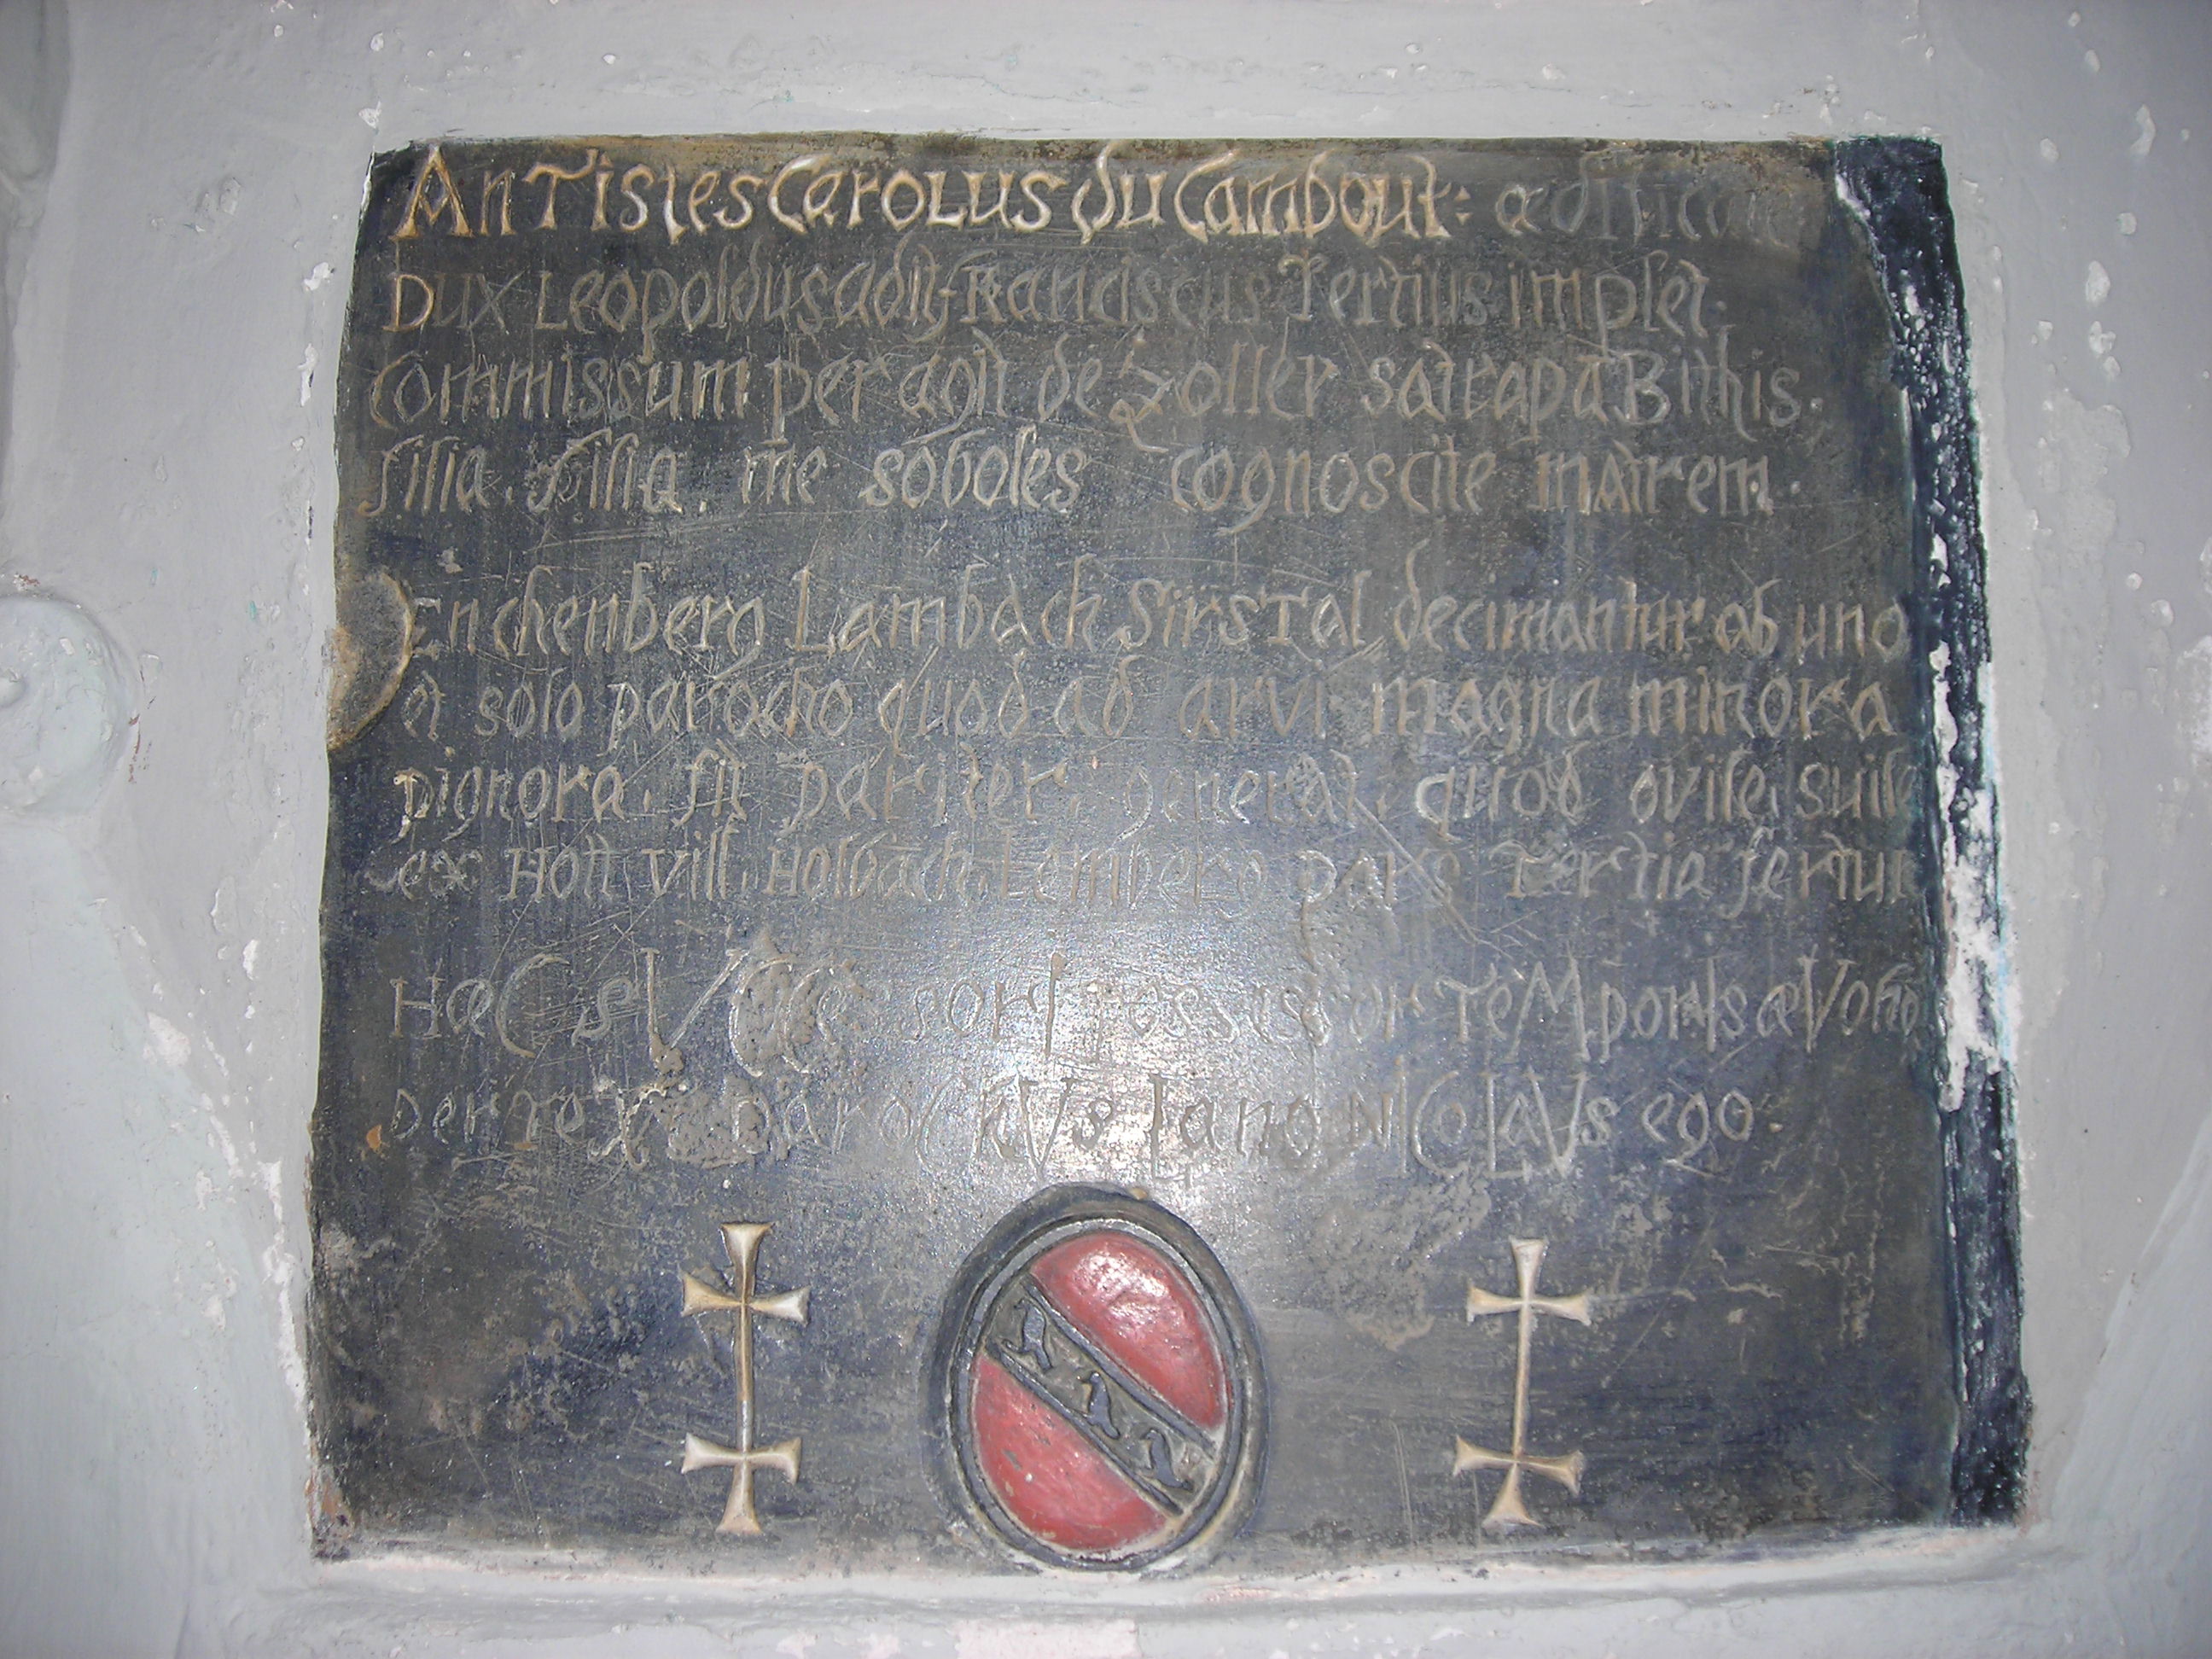 AnTisles Cerolus du Cambout:
Dux Leopoldus adit, Franciscus Tertius implet.
Commissum peragit de Zoller satrapa Bithis,
filia. filia. me soboles cognoscite mAtrem.
Enchenberg Lambach SirsTal decimantur ab uno
et solo parocho quod ad arvi magna minora
pignora. fit pariter, generat, quod ovile, suile
ex Hott vill, Holbach Lemberg pars Tertia fertur
HæC sVCCessorI possessor TeMporIs æVo
paroChVs Iano NICoLaVs ego.